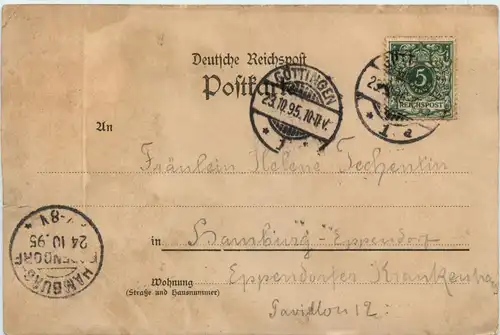 Deutsche Reichspost
Postkarte
GÖTTINGEN
23.10.95.10-11V.
1.a
5
REICHSPOST
An
Fräulein Helene Techentin
in Hamburg-Eppendorf
Wohnung Eppendorfer Krankenhaus
(Straße und Hausnummer)
Pavillon 12.
HAMBURG-
EPPENDORF
24 10.95
7-8V